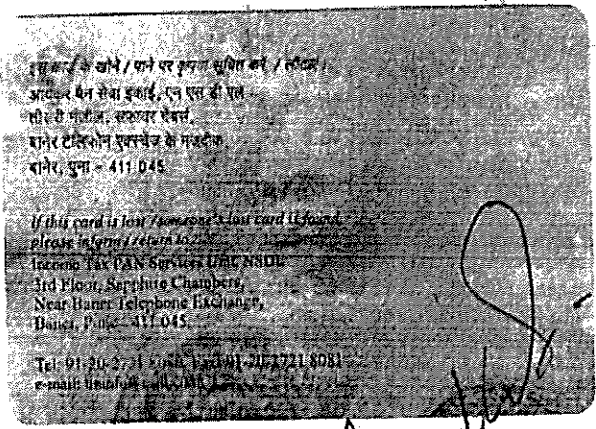 इस कार्ड के खोने / पाने पर कृपया सूचित करें / लौटाएं :
आयकर पैन सेवा इकाई, एन एस डी एल
तीसरी मंजील, सफायर चेंबर्स,
बानेर टेलिफोन एक्स्चेंज के नजदीक,
बानेर, पुना - 411 045
If this card is lost / someone's lost card is found,
please inform / return to :
Income Tax PAN Services Unit, NSDL
3rd Floor, Sapphire Chambers,
Near Baner Telephone Exchange,
Baner, Pune - 411 045
Tel: 91-20-2721 Fax: 91-20-2721 8081
e-mail: